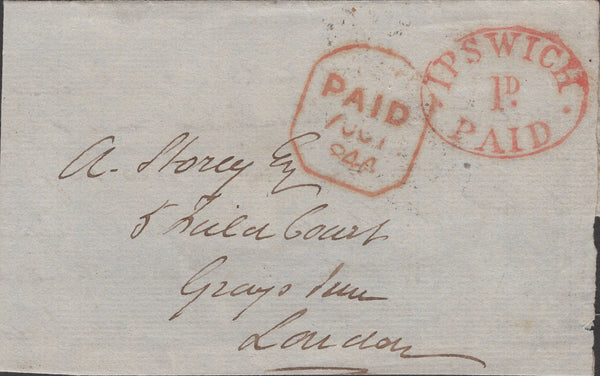 IPSWICH
1D.
PAID
PAID
1844
A. Storey Esq
5 Field Court
Grays Inn
London